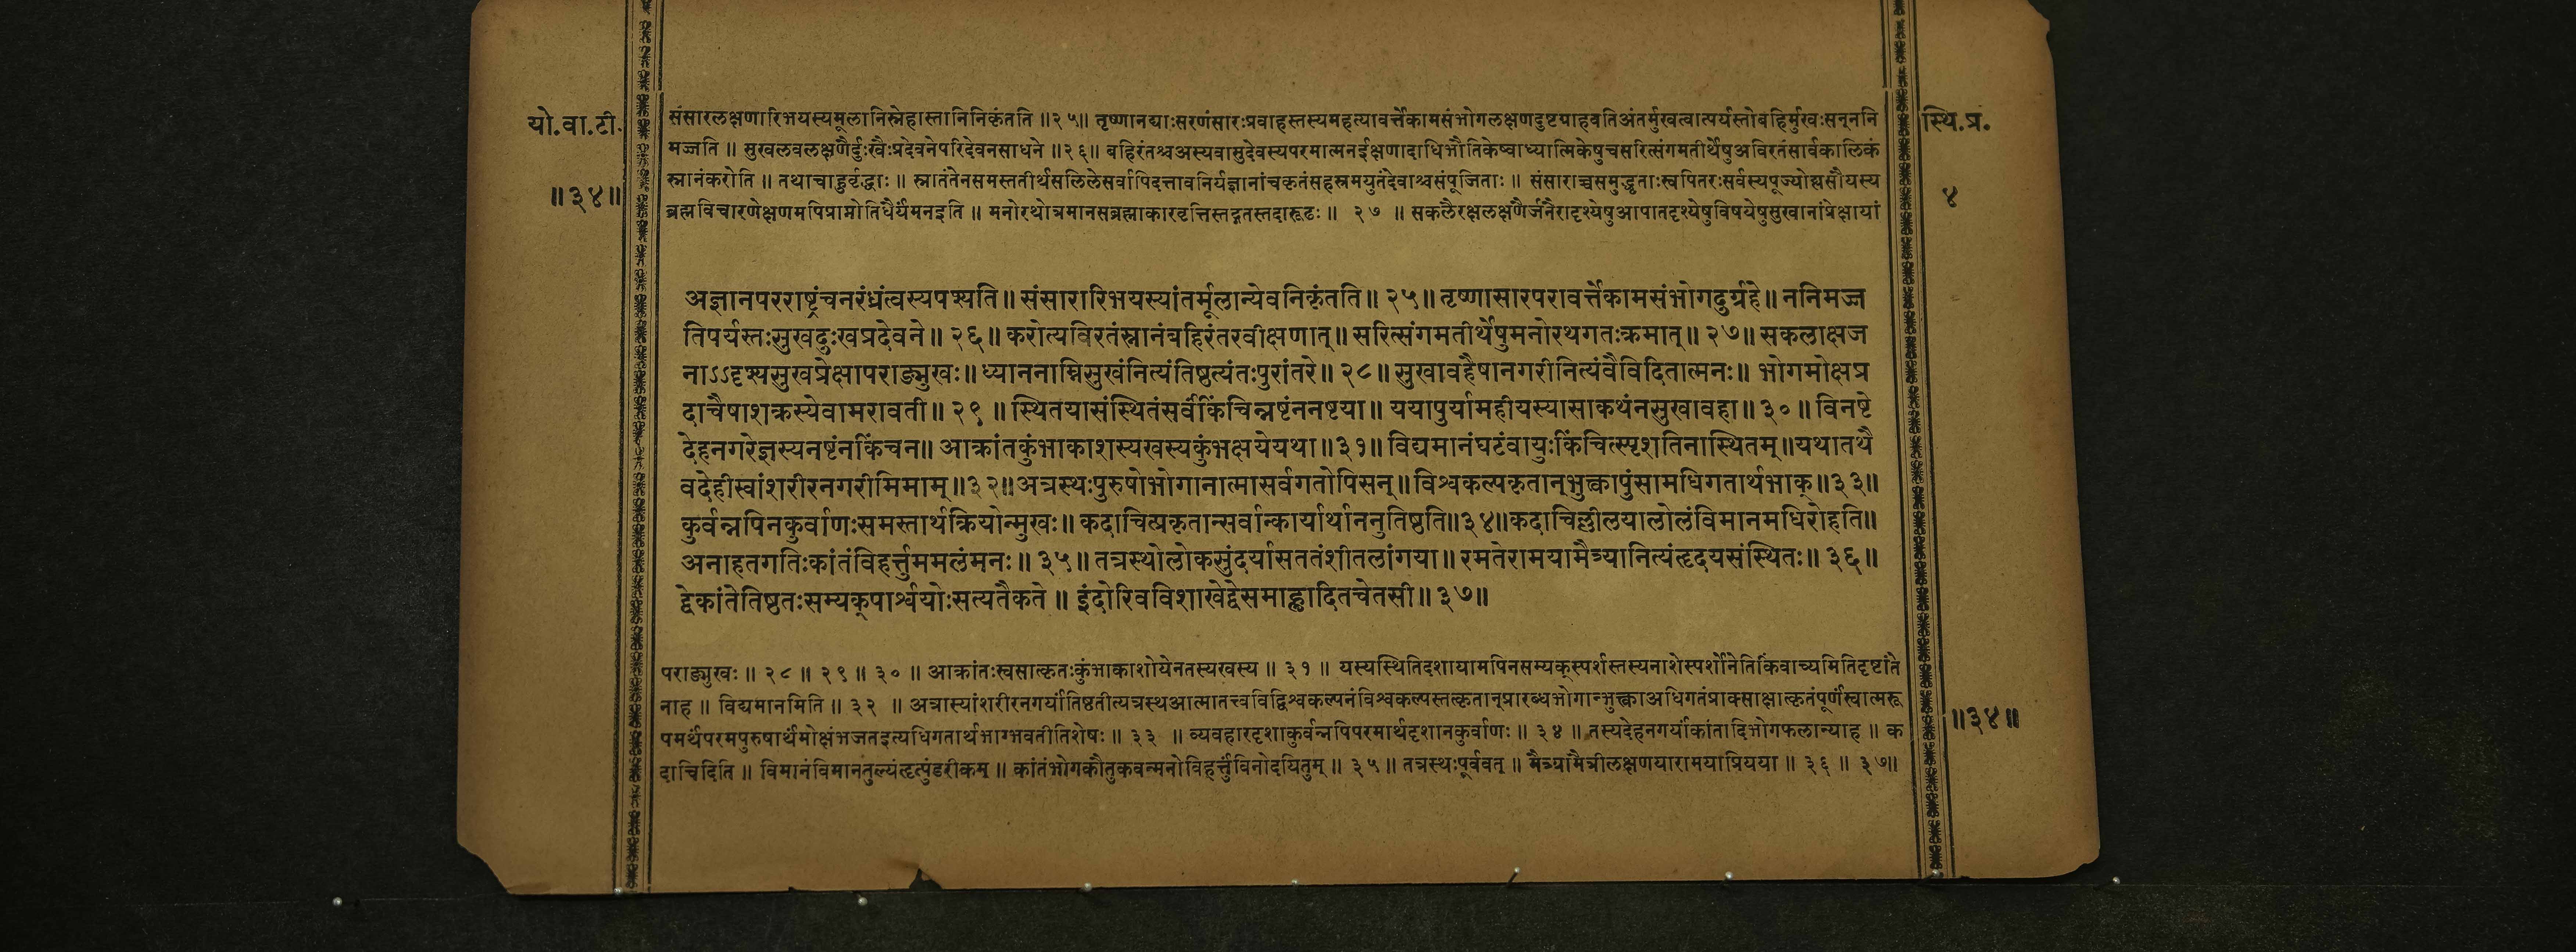 यो.वा.टी.
॥३४॥
स्थि.प्र.
४
संसारलक्षणारिभयस्यमूलानिस्नेहास्तानिनिकृंतति ॥२५॥ तृष्णानद्याःसरणंसारःप्रवाहस्तस्यमहत्यावर्त्तेकामसंभोगलक्षणदुष्टग्राहवतिअंतर्मुखत्वात्पर्यस्तोबहिर्मुखःसन्ननि
मज्जति ॥ सुखलवलक्षणैर्दुःखैःप्रदेवनेपरिदेवनसाधने ॥२६॥ बहिरंतश्चअस्यवासुदेवस्यपरमात्मनईक्षणादाधिभौतिकेष्वाध्यात्मिकेषुचसरित्संगमतीर्थेषुअविरतंसार्वकालिकं
स्नानंकरोति ॥ तथाचाहुर्वृद्धाः ॥ स्नातंतेनसमस्ततीर्थसलिलेसर्वापिदत्तावनिर्यज्ञानांचकृतंसहस्रमयुतंदेवाश्चसंपूजिताः ॥ संसाराच्चसमुद्धृताःस्वपितरःसर्वस्यपूज्योह्यसौयस्य
ब्रह्मविचारणेक्षणमपिप्राप्नोतिधैर्यंमनइति ॥ मनोरथोत्रमानसब्रह्माकारवृत्तिस्तद्गतस्तदारूढः ॥ २७ ॥ सकलैरक्षलक्षणैर्जनैरादृश्येषुआपातदृश्येषुविषयेषुसुखानांप्रेक्षायां
अज्ञानपरराष्ट्रंचनरंध्रंत्वस्यपश्यति॥ संसारारिभयस्यांतर्मूलान्येवनिकृंतति॥ २५॥ तृष्णासारपरावर्त्तेकामसंभोगदुर्ग्रहे॥ ननिमज्ज
तिपर्यस्तःसुखदुःखप्रदेवने॥ २६॥ करोत्यविरतंस्नानंबहिरंतरवीक्षणात्॥ सरित्संगमतीर्थेषुमनोरथगतःक्रमात्॥ २७॥ सकलाक्षज
नाऽऽदृश्यसुखप्रेक्षापराङ्मुखः॥ ध्याननाम्निसुखंनित्यंतिष्ठत्यंतःपुरांतरे॥ २८॥ सुखावहैषानगरीनित्यंवैविदितात्मनः॥ भोगमोक्षप्र
दाचैषाशक्रस्येवामरावती॥ २९ ॥ स्थितयासंस्थितंसर्वंकिंचिन्नष्टंननष्टया॥ ययापुर्यामहीयस्यासाकथंनसुखावहा॥ ३०॥ विनष्टे
देहनगरेज्ञस्यनष्टंनकिंचन॥ आक्रांतकुंभाकाशस्यखस्यकुंभक्षयेयथा॥३१॥ विद्यमानंघटंवायुःकिंचित्स्पृशतिनास्थितम्॥यथातथै
वदेहीस्वांशरीरनगरीमिमाम्॥३२॥अत्रस्थःपुरुषोभोगानात्मासर्वगतोपिसन्॥विश्वकल्पकृतान्भुक्त्वापुंसामधिगतार्थभाक्॥३३॥
कुर्वन्नपिनकुर्वाणःसमस्तार्थक्रियोन्मुखः॥ कदाचित्प्रकृतान्सर्वान्कार्यार्थाननुतिष्ठति॥३४॥कदाचिल्लीलयालोलंविमानमधिरोहति॥
अनाहतगतिःकांतंविहर्त्तुममलंमनः॥ ३५॥ तत्रस्थोलोकसुंदर्यासततंशीतलांगया॥ रमतेरामयामैत्र्यानित्यंहृदयसंस्थितः॥ ३६॥
द्वेकांतेतिष्ठतःसम्यक्पार्श्वयोःसत्यतैकते ॥ इंदोरिवविशाखेद्वेसमाह्लादितचेतसी॥ ३७॥
पराङ्मुखः ॥ २८ ॥ २९ ॥ ३० ॥ आक्रांतःस्वसात्कृतःकुंभाकाशोयेनतस्यखस्य ॥ ३१ ॥ यस्यस्थितिदशायामपिनसम्यक्स्पर्शस्तस्यनाशेस्पर्शोनेतिकिंवाच्यमितिदृष्टांते
नाह ॥ विद्यमानमिति ॥ ३२ ॥ अत्रास्यांशरीरनगर्यांतिष्ठतीत्यत्रस्थआत्मातत्त्वविद्विश्वकल्पनंविश्वकल्पस्तत्कृतान्प्रारब्धभोगान्भुक्त्वाअधिगतंप्राक्साक्षात्कृतंपूर्णस्वात्मरू
पमर्थंपरमपुरुषार्थंमोक्षंभजतइत्यधिगतार्थभाग्भवतीतिशेषः ॥ ३३ ॥ व्यवहारदृशाकुर्वन्नपिपरमार्थदृशानकुर्वाणः ॥ ३४ ॥ तस्यदेहनगर्यांकांतादिभोगफलान्याह ॥ क
दाचिदिति ॥ विमानंविमानतुल्यंहृत्पुंडरीकम् ॥ कांतंभोगकौतुकवन्मनोविहर्त्तुंविनोदयितुम् ॥ ३५॥ तत्रस्थःपूर्ववत् ॥ मैत्र्यामैत्रीलक्षणयारामयाप्रियया ॥ ३६ ॥ ३७॥
॥३४॥